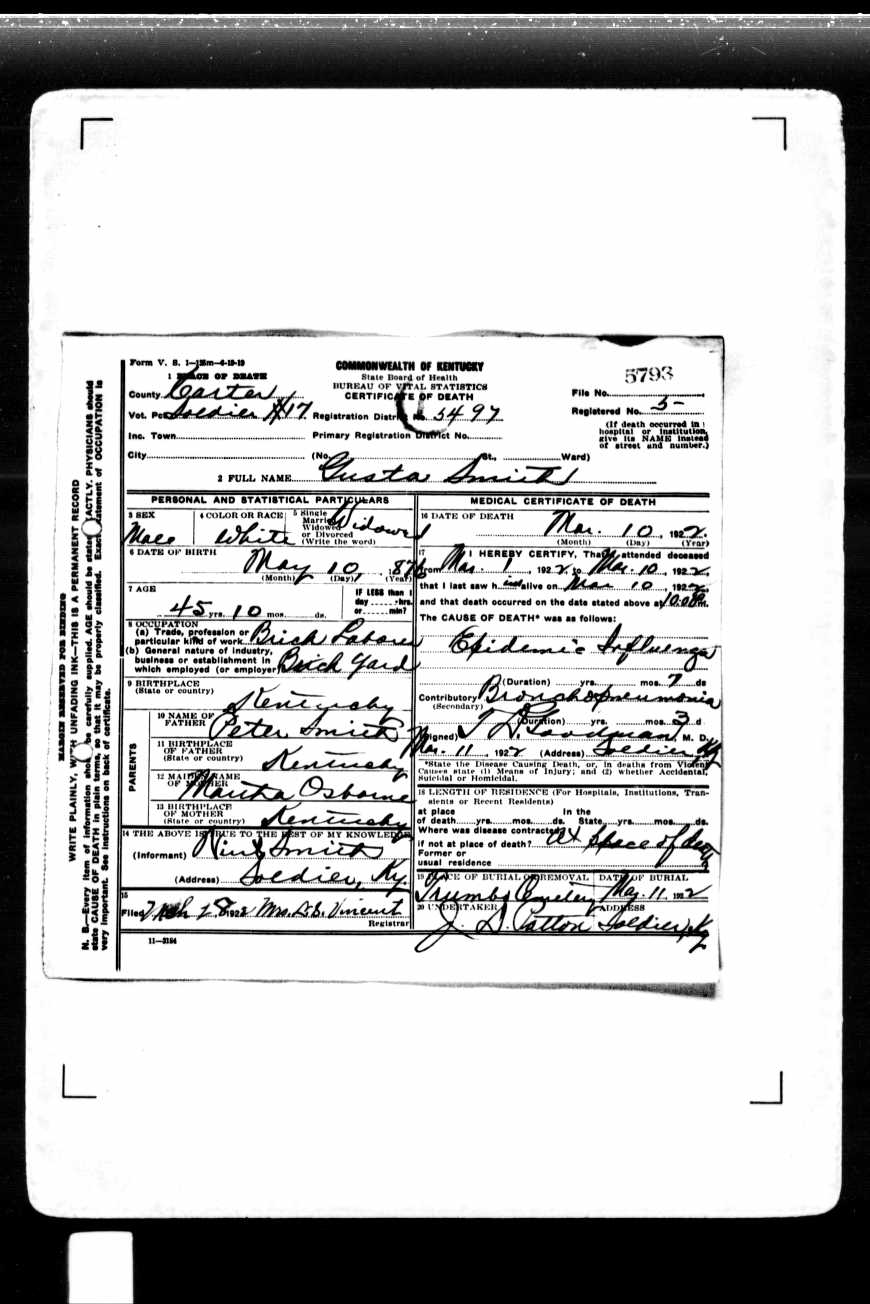 MARGIN RESERVED FOR BINDING
WRITE PLAINLY, WITH UNFADING INK—THIS IS A PERMANENT RECORD
N. B.—Every item of information should be carefully supplied. AGE should be stated EXACTLY. PHYSICIANS should
state CAUSE OF DEATH in plain terms, so that it may be properly classified. Exact statement of OCCUPATION is
very important. See instructions on back of certificate.
Form V. S. 1—
1 PLACE OF DEATH
County Carter
Vot. Pct. Soldier #17
Inc. Town
City
COMMONWEALTH OF KENTUCKY
State Board of Health
BUREAU OF VITAL STATISTICS
CERTIFICATE OF DEATH
Registration District No. 5497
Primary Registration District No.
(No. St., Ward)
5793
File No.
Registered No. 5-
(If death occurred in
hospital or institution,
give its NAME instead
of street and number.)
2 FULL NAME Gusta Smith
PERSONAL AND STATISTICAL PARTICULARS
3 SEX Male
4 COLOR OR RACE White
5 Single
Married
Widowed
or Divorced
(Write the word) Widowed
6 DATE OF BIRTH
May 10, 1876
(Month) (Day) (Year)
7 AGE
45 yrs. 10 mos. ds.
IF LESS than 1
day hrs.
or min?
8 OCCUPATION
(a) Trade, profession or
particular kind of work Brick Laborer
(b) General nature of industry,
business or establishment in
which employed (or employer) Brick Yard
9 BIRTHPLACE
(State or country) Kentucky
PARENTS
10 NAME OF
FATHER Peter Smith
11 BIRTHPLACE
OF FATHER
(State or country) Kentucky
12 MAIDEN NAME
OF MOTHER Martha Osborne
13 BIRTHPLACE
OF MOTHER
(State or country) Kentucky
14 THE ABOVE IS TRUE TO THE BEST OF MY KNOWLEDGE
(Informant) Smith
(Address) Soldier, Ky.
15
Filed 1922 Mrs. Vincent
Registrar
11—3184
MEDICAL CERTIFICATE OF DEATH
16 DATE OF DEATH
Mar. 10, 1922.
(Month) (Day) (Year)
17 I HEREBY CERTIFY, That I attended deceased
from Mar. 1, 1922, to Mar. 10, 1922,
that I last saw him alive on Mar 10, 1922,
and that death occurred on the date stated above at m.
The CAUSE OF DEATH* was as follows:
Epidemic Influenza
(Duration) yrs. mos. 7 ds
Contributory Bronchopneumonia
(Secondary)
(Duration) yrs. mos. 3 d
(Signed) Goodman, M. D.
Mar. 11, 1922 (Address) Soldier Ky
*State the Disease Causing Death, or, in deaths from Violent
Causes state (1) Means of Injury; and (2) whether Accidental,
Suicidal or Homicidal.
18 LENGTH OF RESIDENCE (For Hospitals, Institutions, Tran-
sients or Recent Residents)
At place In the
of death yrs. mos. ds. State yrs. mos. ds.
Where was disease contracted,
if not at place of death? At place of death
Former or
usual residence
19 PLACE OF BURIAL OR REMOVAL DATE OF BURIAL
Trumbo Cemetery Mar. 11, 1922
20 UNDERTAKER ADDRESS
J. D. Patton Soldier, Ky